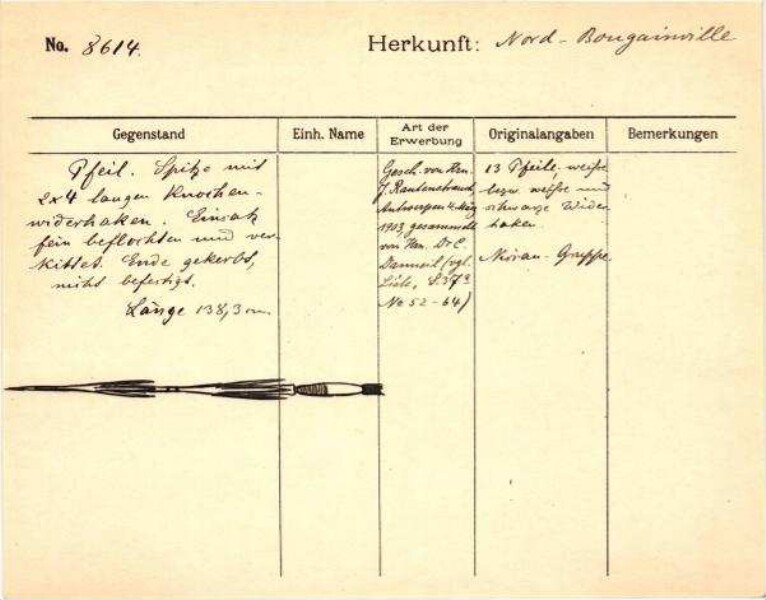 No. 8614.
Herkunft: Nord-Bougainville
Gegenstand
Einh. Name
Art der Erwerbung
Originalangaben
Bemerkungen
Pfeil. Spitze mit
2x4 langen Knochen-
widerhaken. Einsatz
fein beflochten und ver-
kittet. Ende gekerbt,
nicht befestigt.
Länge 138,3 cm.
Gesch. von Hrn.
J. Rautenstrauch,
Antwerpen 4. März
1903, gesammelt
von Hrn. Dr C.
Danneil (vgl.
Liste, S.37
No 52-64)
13 Pfeile, weiße
bzw. weiße und
schwarze Wider-
haken.
Nissan-Gruppe.